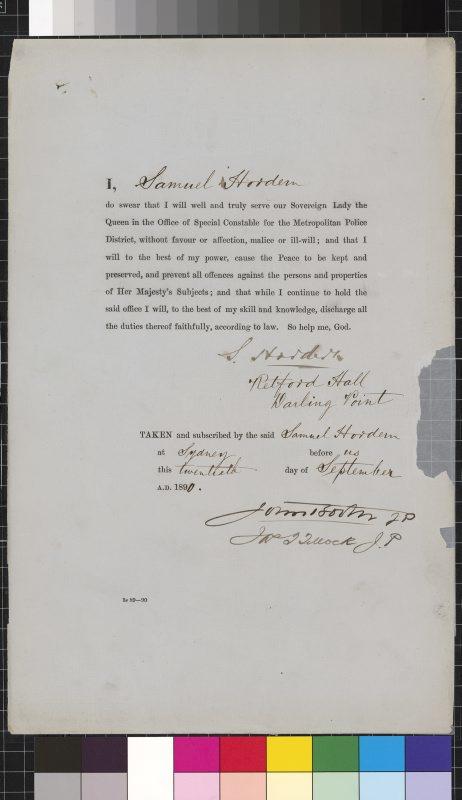 I, Samuel Hordern
do swear that I will well and truly serve our Sovereign Lady the
Queen in the Office of Special Constable for the Metropolitan Police
District, without favour or affection, malice or ill-will; and that I
will to the best of my power, cause the Peace to be kept and
preserved, and prevent all offences against the persons and properties
of Her Majesty's Subjects; and that while I continue to hold the
said office I will, to the best of my skill and knowledge, discharge all
the duties thereof faithfully, according to law. So help me, God.
S. Hordern
Retford Hall
Darling Point
TAKEN and subscribed by the said Samuel Hordern
at Sydney before us
this twentieth day of September
A.D. 1890.
John Booth JP
J.P.